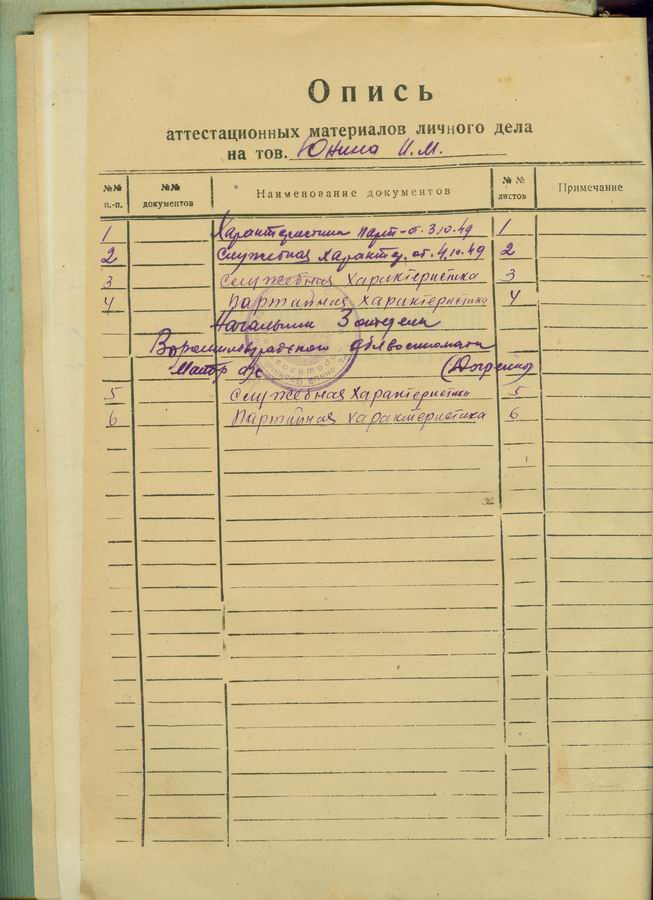 Опись
аттестационных материалов личного дела
на тов. Юнина И.М.
№№ п.-п. №№ документов Наименование документов №№ листов Примечание
1 Характеристика парт-от. 3.10.49 1
2 Служебная характ. от. 4.10.49 2
3 Служебная характеристика 3
4 Партийная характеристика 4
Начальник 3 отдела
Ворошиловградского облвоенкомата
Майор
5 Служебная характеристика 5
6 Партийная характеристика 6